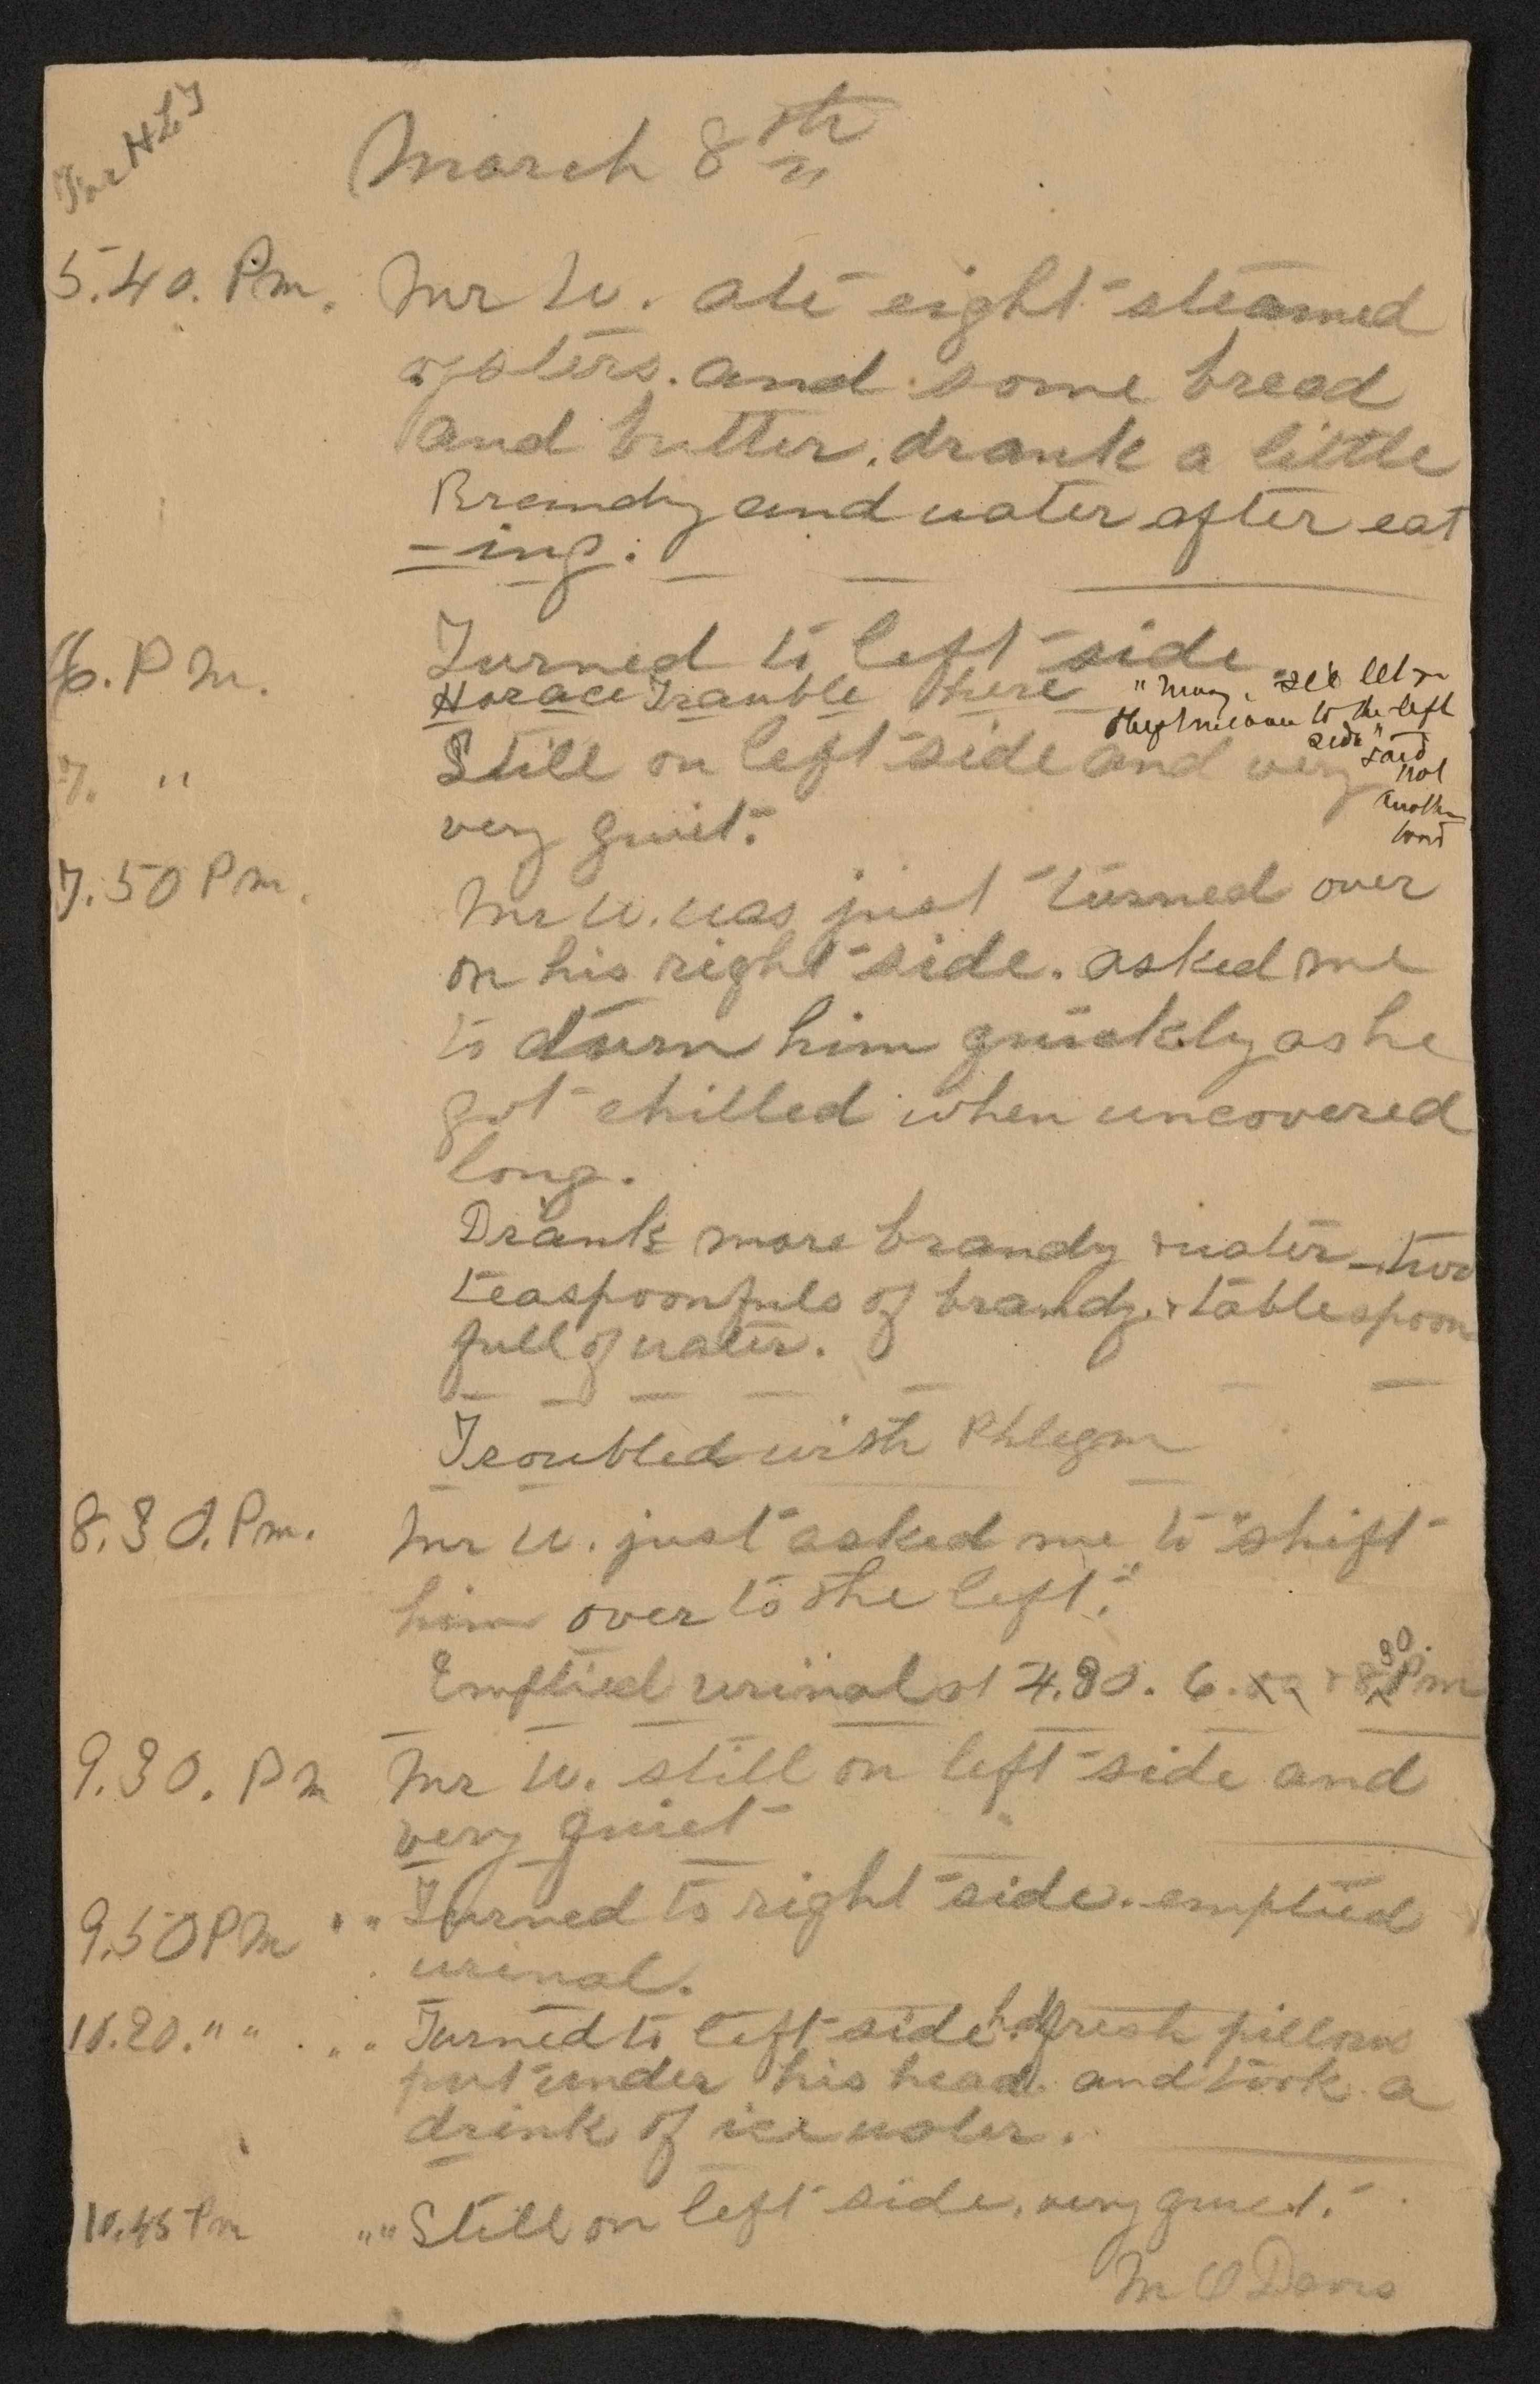 For HLT
March 8th
5.40. Pm. Mr W. ate eight steamed
oysters. and some bread
and butter. drank a little
Brandy and water after eat
-ing.
6. P M. Turned to left side
Horace Traubel there
"Mary, I'll let you
help me over to the left
side" said
not
another
word
7. " Still on left side and very
very quiet.
7.50 Pm. Mr W. was just turned over
on his right side. asked me
to turn him quickly as he
got chilled when uncovered
long.
Drank more brandy & water - two
teaspoonfuls of brandy. & tablespoon
full of water.
Troubled with Phlegm
8.30. Pm. Mr W. just asked me to "shift
him over to the left."
Emptied urinal at 4.30. 6. & 8 30. Pm
9.30. P M Mr W. still on left side and
very quiet
9.50 P M " Turned to right side. emptied
urinal.
10.20. " " " Turned to left side. had fresh pillows
put under his head. and took a
drink of ice water.
10.45 Pm " " Still on left side. very quiet.
M O Davis